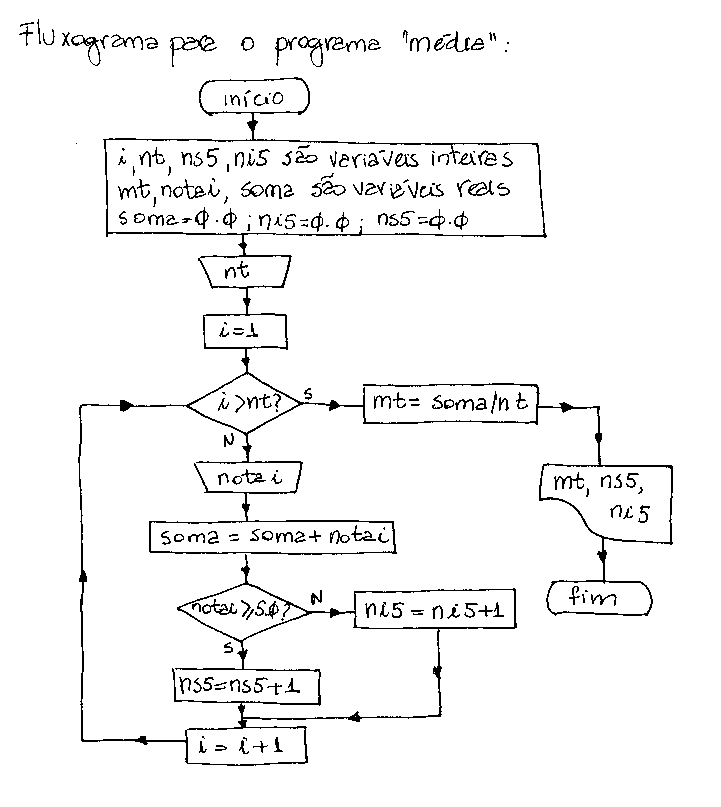 Fluxograma para o programa "média":
início
i, nt, ns5, ni5 são variáveis inteiras
mt, notai, soma são variáveis reais
soma=0.0; ni5=0.0; ns5=0.0
nt
i=1
i>nt?
S
mt= soma/nt
N
notai
mt, ns5,
ni5
soma = soma+notai
fim
notai≥5.0?
N
ni5=ni5+1
S
ns5=ns5+1
i = i+1